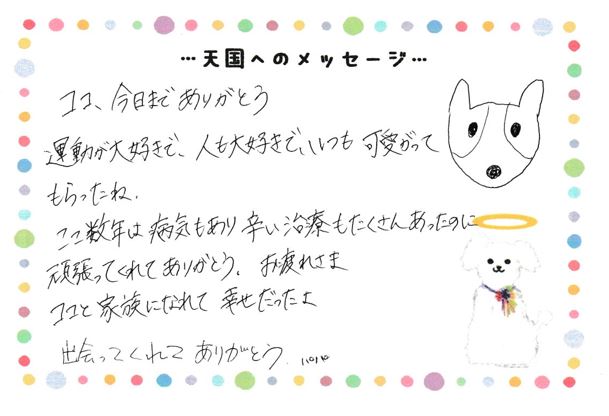 …天国へのメッセージ…
ココ、今日までありがとう
運動が大好きで、人も大好きで、いつも可愛がって
もらったね、
ここ数年は病気もあり辛い治療もたくさんあったのに
頑張ってくれてありがとう。お疲れさま
ココと家族になれて幸せだったよ
出会ってくれてありがとう。